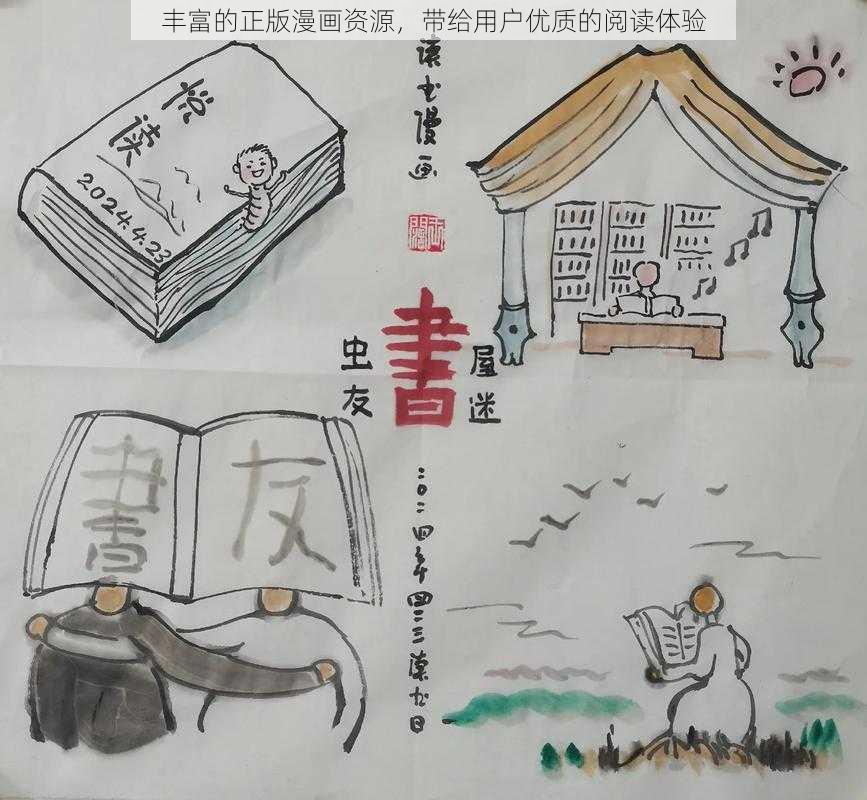 丰富的正版漫画资源，带给用户优质的阅读体验
悦读
2024.4.23
读书漫画
書
虫友
屋迷
書友
二〇二四年四二三读书日